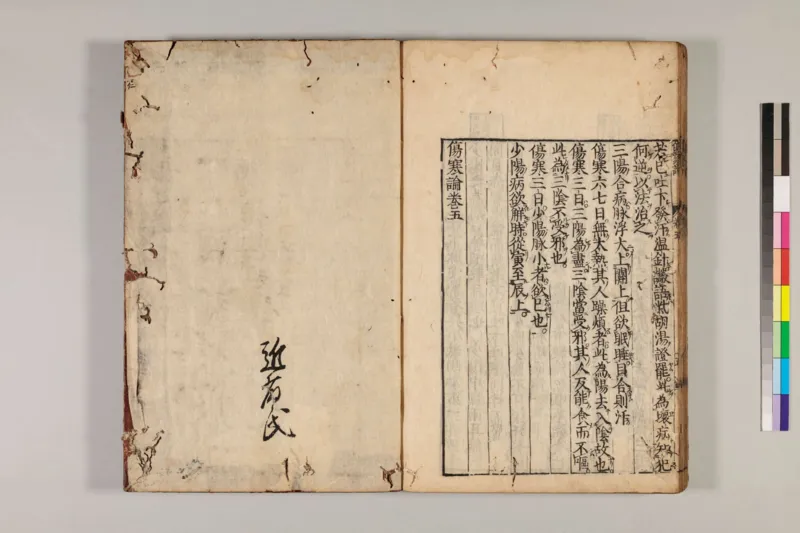 若已吐下發汗温針讝語柴胡湯證罷此為壞病知犯
何逆以法治之
三陽合病脉浮大上關上但欲眠睡目合則汗
傷寒六七日無大熱其人躁煩者此為陽去入陰故也
傷寒三日三陽為盡三陰當受邪其人反能食而不嘔
此為三陰不受邪也
傷寒三日少陽脉小者欲已也
少陽病欲解時從寅至辰上
傷寒論卷五
近藤氏